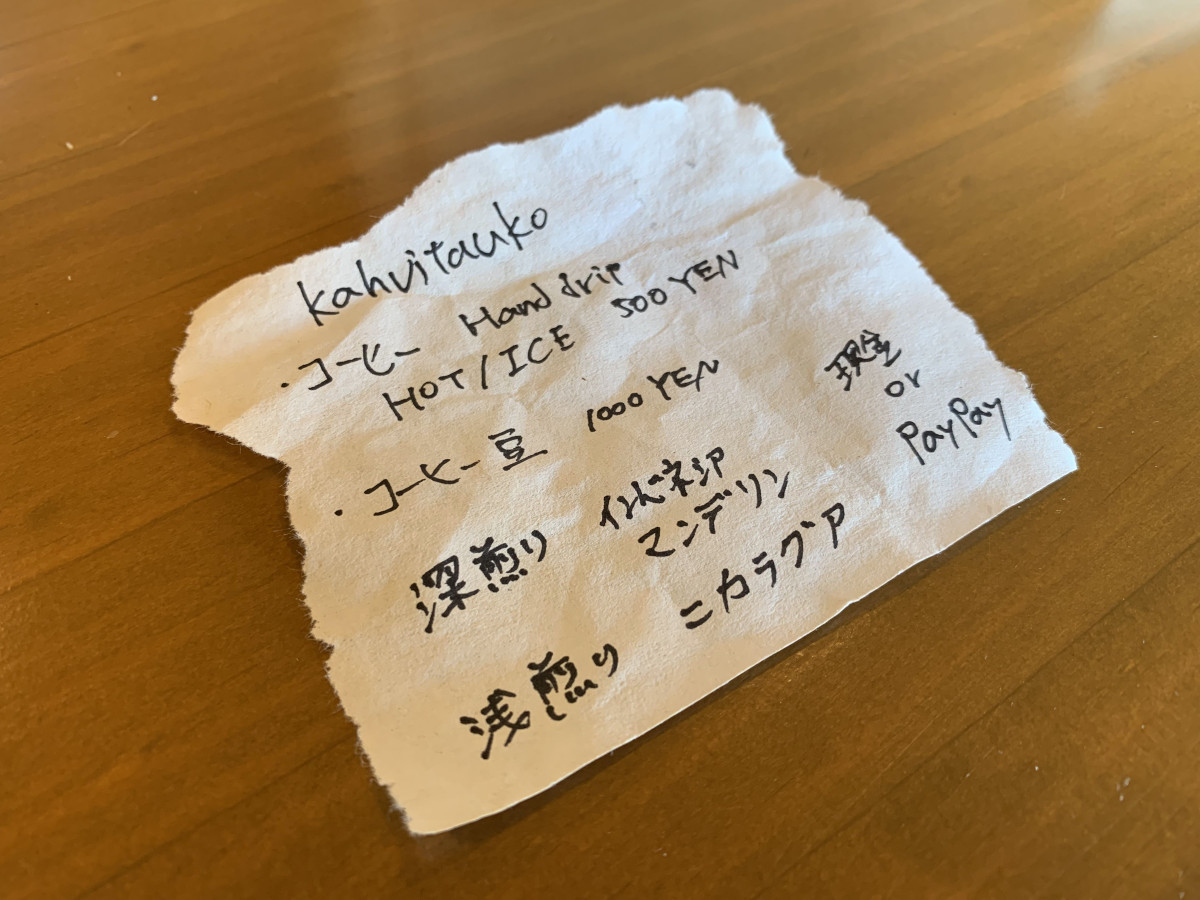 kahvitauko
・コーヒー Hand drip
HOT/ICE 500 YEN
・コーヒー豆 1000 YEN
現金
or
PayPay
深煎り インドネシア
マンデリン
浅煎り ニカラグア